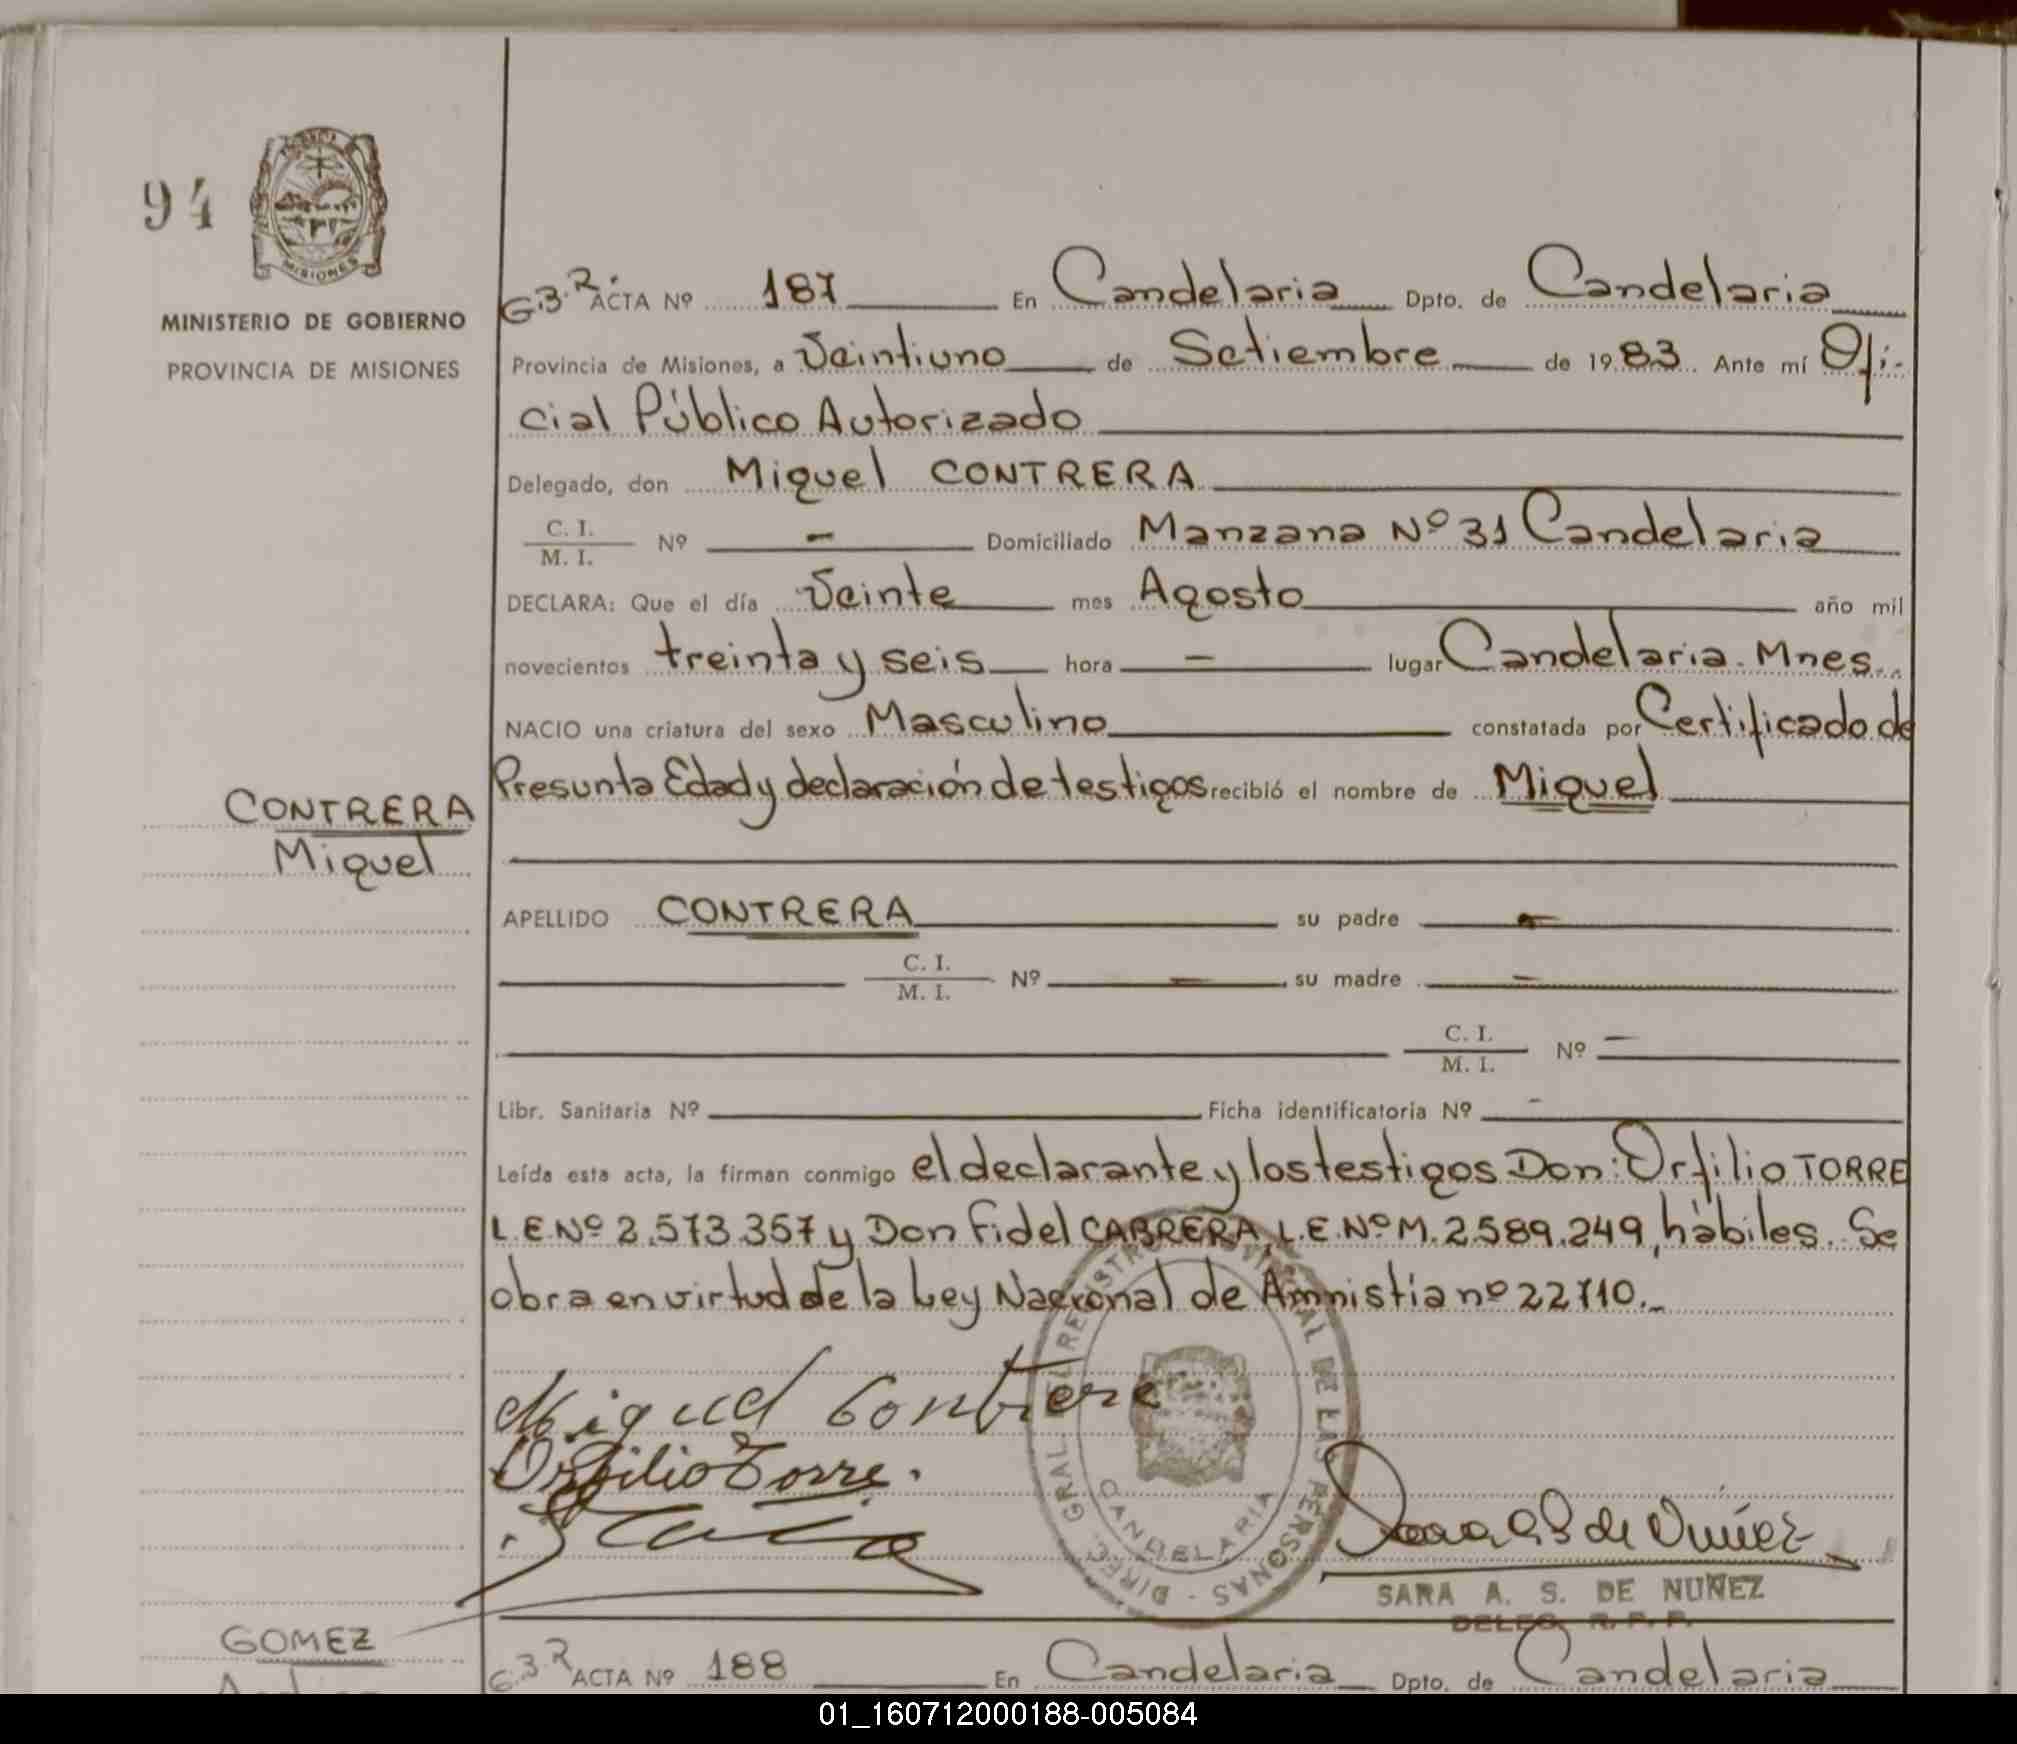 94
MISIONES
MINISTERIO DE GOBIERNO
PROVINCIA DE MISIONES
G.B.R. ACTA Nº 187 En Candelaria Dpto. de Candelaria
Provincia de Misiones, a Veintiuno de Setiembre de 1983. Ante mí Ofi-
cial Público Autorizado
Delegado, don Miguel CONTRERA
C. I.
M. I. Nº - Domiciliado Manzana Nº 31 Candelaria
DECLARA: Que el día Veinte mes Agosto año mil
novecientos treinta y seis hora - lugar Candelaria. Mnes.
NACIO una criatura del sexo Masculino constatada por Certificado de
Presunta Edad y declaración de testigos recibió el nombre de Miguel
CONTRERA
Miguel
APELLIDO CONTRERA su padre -
C. I.
M. I. Nº - su madre -
C. I.
M. I. Nº -
Libr. Sanitaria Nº Ficha identificatoria Nº -
Leída esta acta, la firman conmigo el declarante y los testigos Don: Orfilio TORRE
L.E.Nº 2.573.357 y Don Fidel CABRERA, L.E.Nº M. 2.589.249, hábiles. Se
obra en virtud de la Ley Nacional de Amnistía nº 22710.
Miguel Contrera
Orfilio Torre.
DIREC. GRAL. DEL REGISTRO PROVINCIAL DE LAS PERSONAS - CANDELARIA
Sara A S de Nuñez
SARA A. S. DE NUÑEZ
DELEG. R. P. P.
GOMEZ
G.B.R ACTA Nº 188 En Candelaria Dpto. de Candelaria
01_160712000188-005084